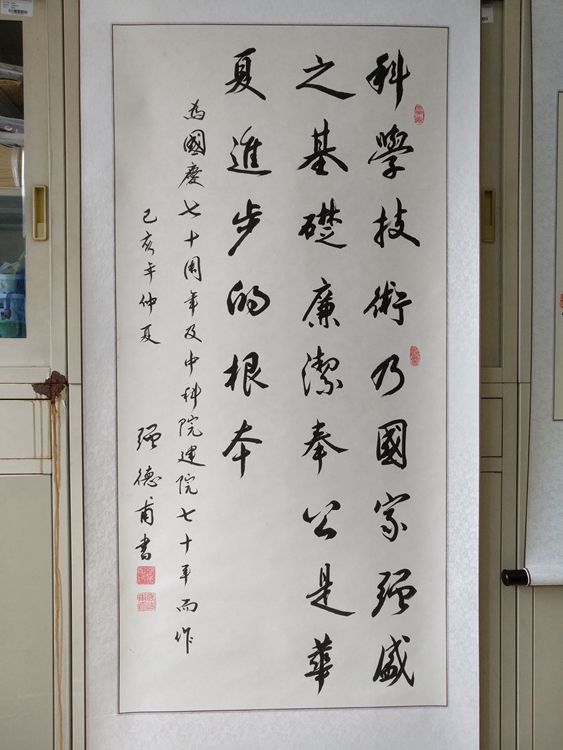 科學技術乃國家强盛
之基礎廉潔奉公是華
夏進步的根本
為國慶七十周年及中科院建院七十年而作
己亥年仲夏
强德甫書